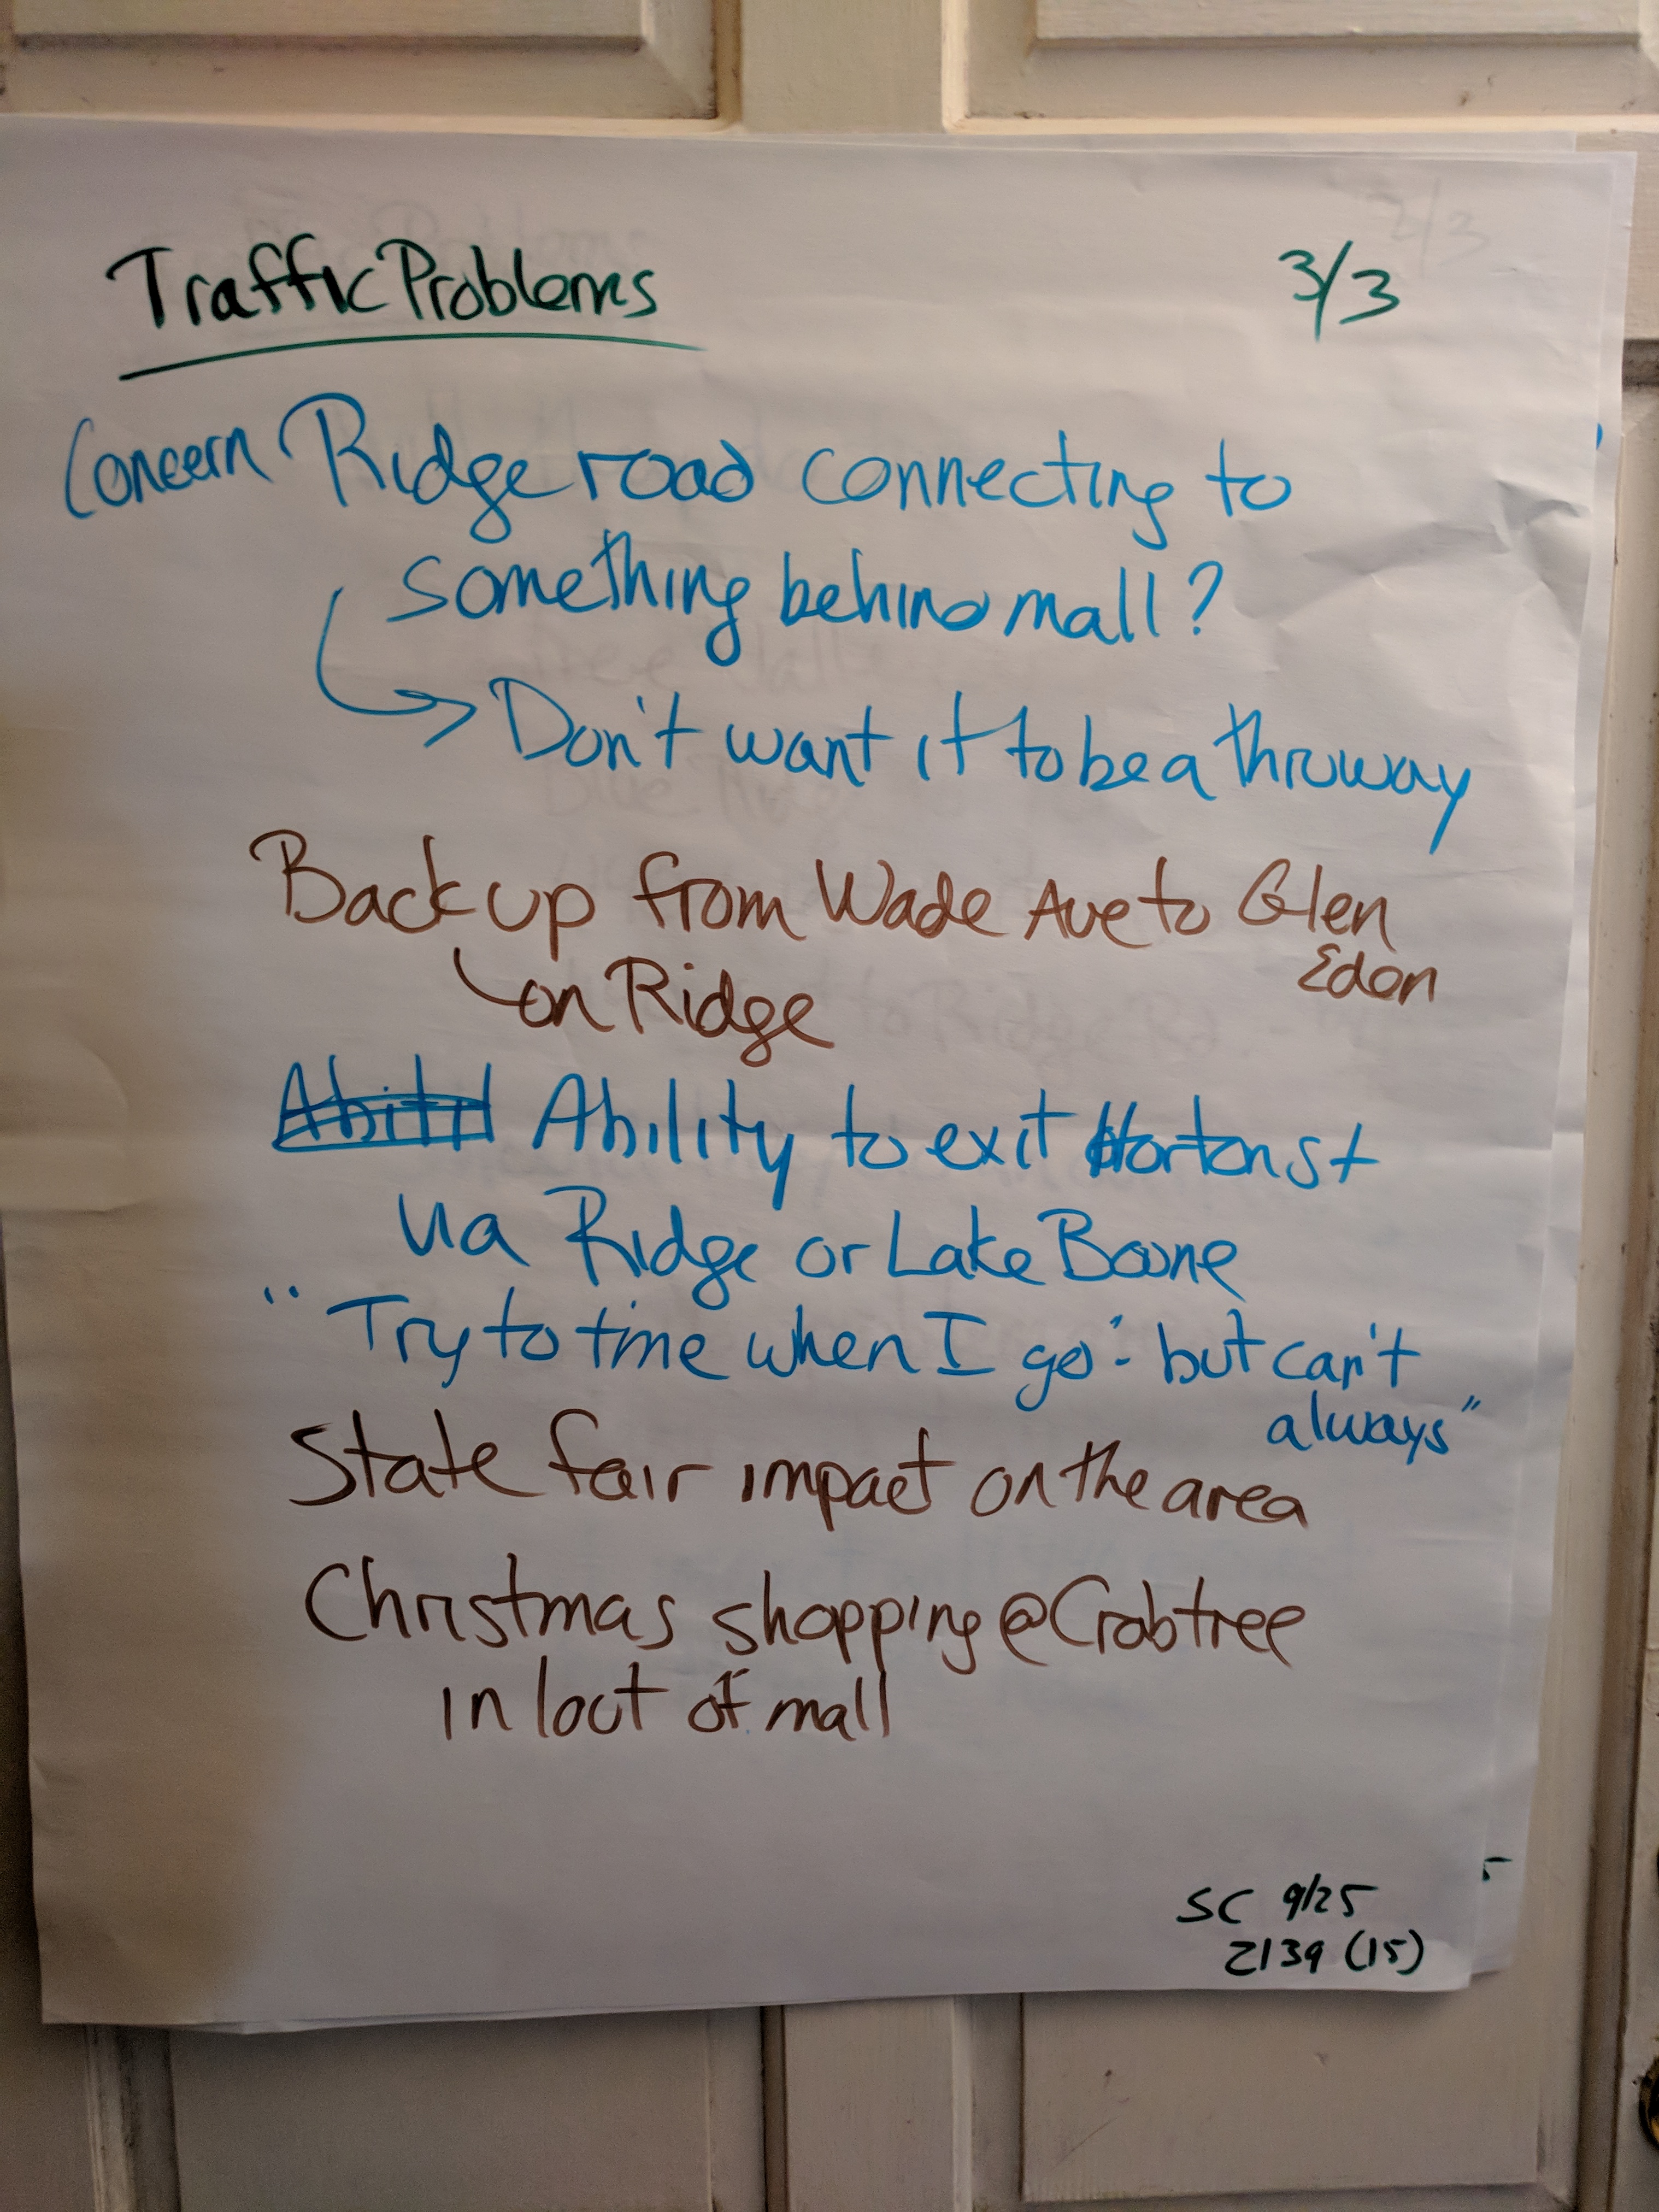 Traffic Problems 3/3
Concern Ridge road connecting to
something behind mall?
Don't want it to be a thruway
Back up from Wade Ave to Glen
Eden
on Ridge
Ability to exit Horton st
via Ridge or Lake Boone
"Try to time when I go" - but can't
always"
State fair impact on the area
Christmas shopping @ Crabtree
in/out of mall
SC 9/25
2139 (15)